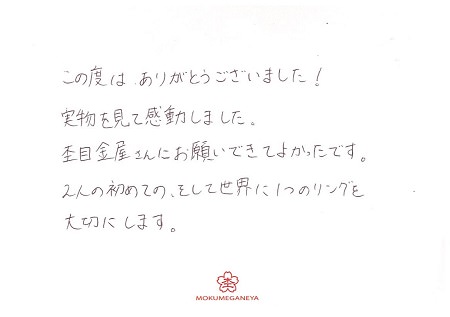 この度は ありがとうございました！
実物を見て感動しました。
杢目金屋さんにお願いできてよかったです。
2人の初めての、そして世界に1つのリングを
大切にします。
杢
MOKUMEGANEYA